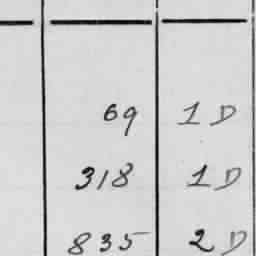 69 1 D
318 1 D
835 2 D